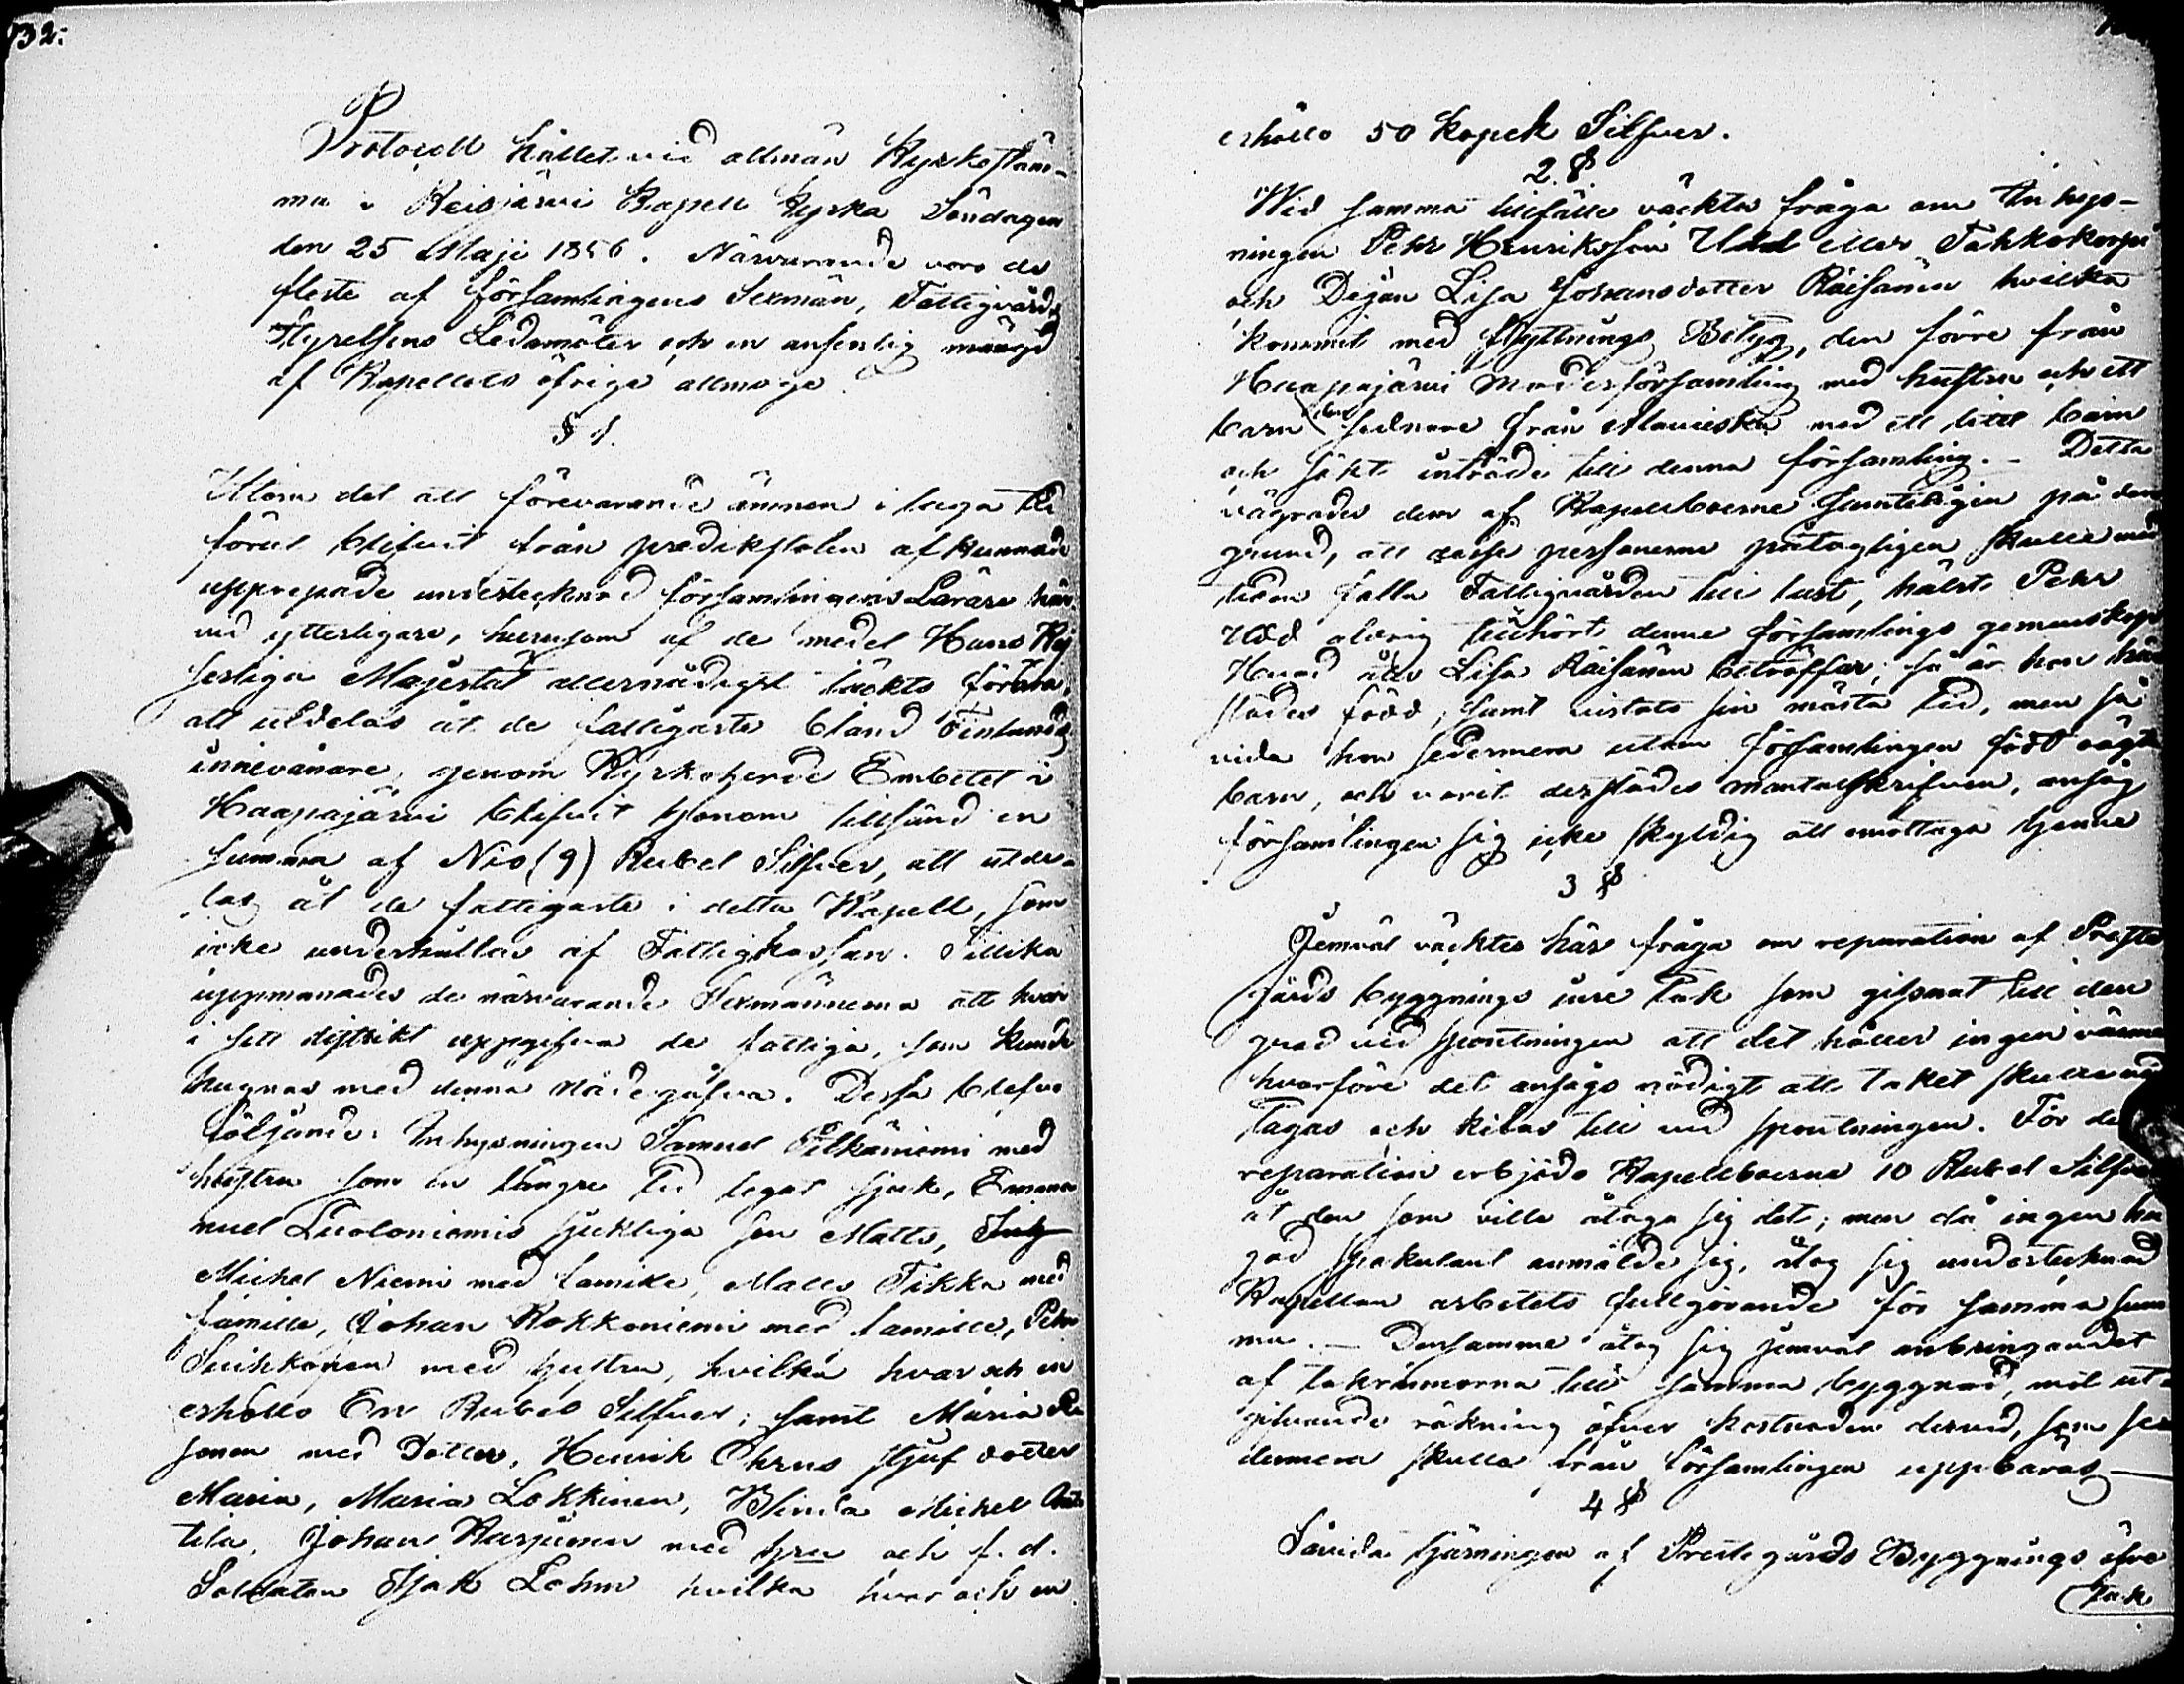 132:
Protocoll hållet vid allmän Kyrkostäm-
ma i Reisjärvi Kapell Kyrka Söndagen
den 25 Maji 1856. Närvarande voro de
fleste af församlingens Sexmän, Fattigvårds
Styrelsens Ledamöter och en ansenlig mängd
af Kapellets öfrige allmoge.
§ 1.
Utom det att förevarande ämnen i laga tid
förut blifvit från predikstolen afkunnade
upprepade undertecknad församlingens Lärare här
vid ytterligare, hurusom af de medel Hans Kej
serliga Majestät allernådigst täckts förära,
att utdelas åt de fattigaste bland Finlands
innevånare, genom Kyrkoherde Embetet i
Haapajärvi blifvit honom tillsänd en
summa af Nio (9) Rubel Silfver, att utde-
las åt de fattigaste i detta Kapell, som
icke underhållas af Fattigkassan. Tillika
uppmanades de närvarande Sexmännerna att hvar
i sitt distrikt uppgifva de fattiga, som kunde
hugnas med denna nådegåfva. Dessa blefvo
följande: Inhysningen Samuel Pitkäniemi med
hustru som en längre tid legat sjuk, Emma-
nuel Luoloniemis sjukliga son Matts,
Michel Niemi med familie, Matts Tikka med
familie, Johan Kokkoniemi med familie, Pehr
Suihkonen med hustru, hvilka hvar och en
erhöllo En Rubel Silfver; samt Maria
sonen med Dotter, Henrik Ohrns stjuf dotter
Maria, Maria Lokkinen, Blinda Michel Ant
tila, Johan Karjunen med hru och f. d.
Soldaten Isak Lohm hvilka hvar och en
erhöllo 50 Kopek Silfver.
2. §
Wid samma tillfälle väcktes fråga om Inhys-
ningen Pehr Henriksson Udd eller Tahkokorpi
och Pigan Lisa Johansdotter Räisänen hvilka
kommit med flyttnings Betyg, den förre från
Haapajärvi Moderförsamling med hustru och ett
barn den sednare från Alavieska med ett litet barn
och sökt inträde till denna församling. - Detta
vägrades dem af Kapellboerne samteligen på den
grund, att desse personerna påtagligen skulle med
tiden falla Fattigvården till last, hälst Pehr
Udd aldrig tillhört denna församlings gemenskap
Hvad åter Lisa Räisänen beträffar; så är hon här
städes född, samt vistats sin mästa tid, men så
vida hon sedermera utom församlingen födt oägta
barn, och varit derstädes mantalsskrifven, ansåg
församlingen sig icke skyldig att emottaga henne
3 §
Jemväl väcktes här fråga om reparation af Preste
gårds byggnings inre Tak som gisnat till den
grad vid spontningen att det håller ingen värme
hvarföre det ansågs nödigt att taket skulle ned
tagas och kilas till vid spontningen. För de
reparation erbjödo Kapellboerne 10 Rubel Silfver
åt den som ville åtaga sig det; men då ingen hu
gad spekulant anmälde sig, åtog sig undertecknad
Kapellan arbetets fullgörande för samma sum
ma. - Densamme åtog sig jemväl anbringandet
af takrännorna till samma byggnad, mot ut
gifvande räkning öfver kostnaden derved, som se
dermera skulle från församlingen uppbäras -
4 §
Såvida tjärningen af Prestegårds Byggnings öfre
Tak